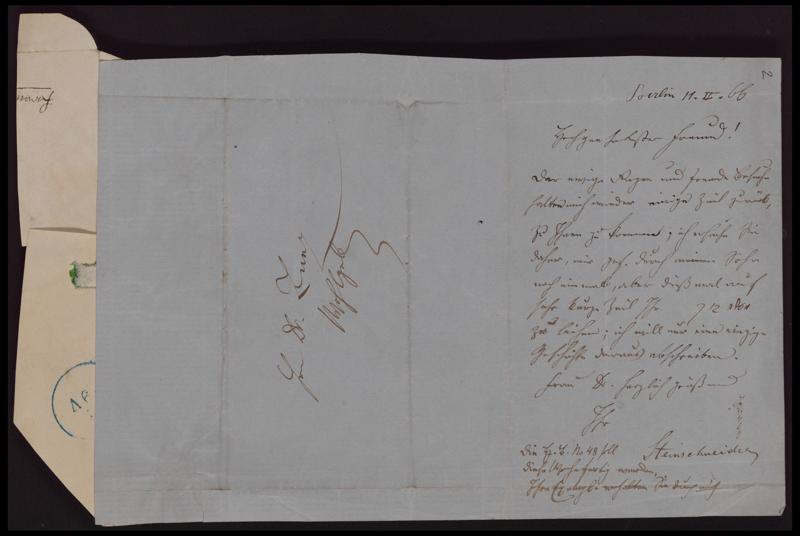 2
Berlin 11. II. 66
Hochgeehrtester Freund!
Der ewige Regen und fremde Besuche
halten mich wieder einige Zeit zurück,
zu Ihnen zu kommen; ich ersuche Sie
daher, mir gef. durch meinen Sohn
noch einmal, aber dießmal auf
sehr kurze Zeit Ihr 7 12
zu leihen; ich will nur eine einzige
Geschichte daraus abschreiben.
Frau Dr. herzlich grüßend
Ihr
Steinschneider
Die H. B. No 48 soll
diese Woche fertig werden,
Ihre Exempl. erhalten Sie durch mich
Hr. Dr. Zunz
Wohlgeb.